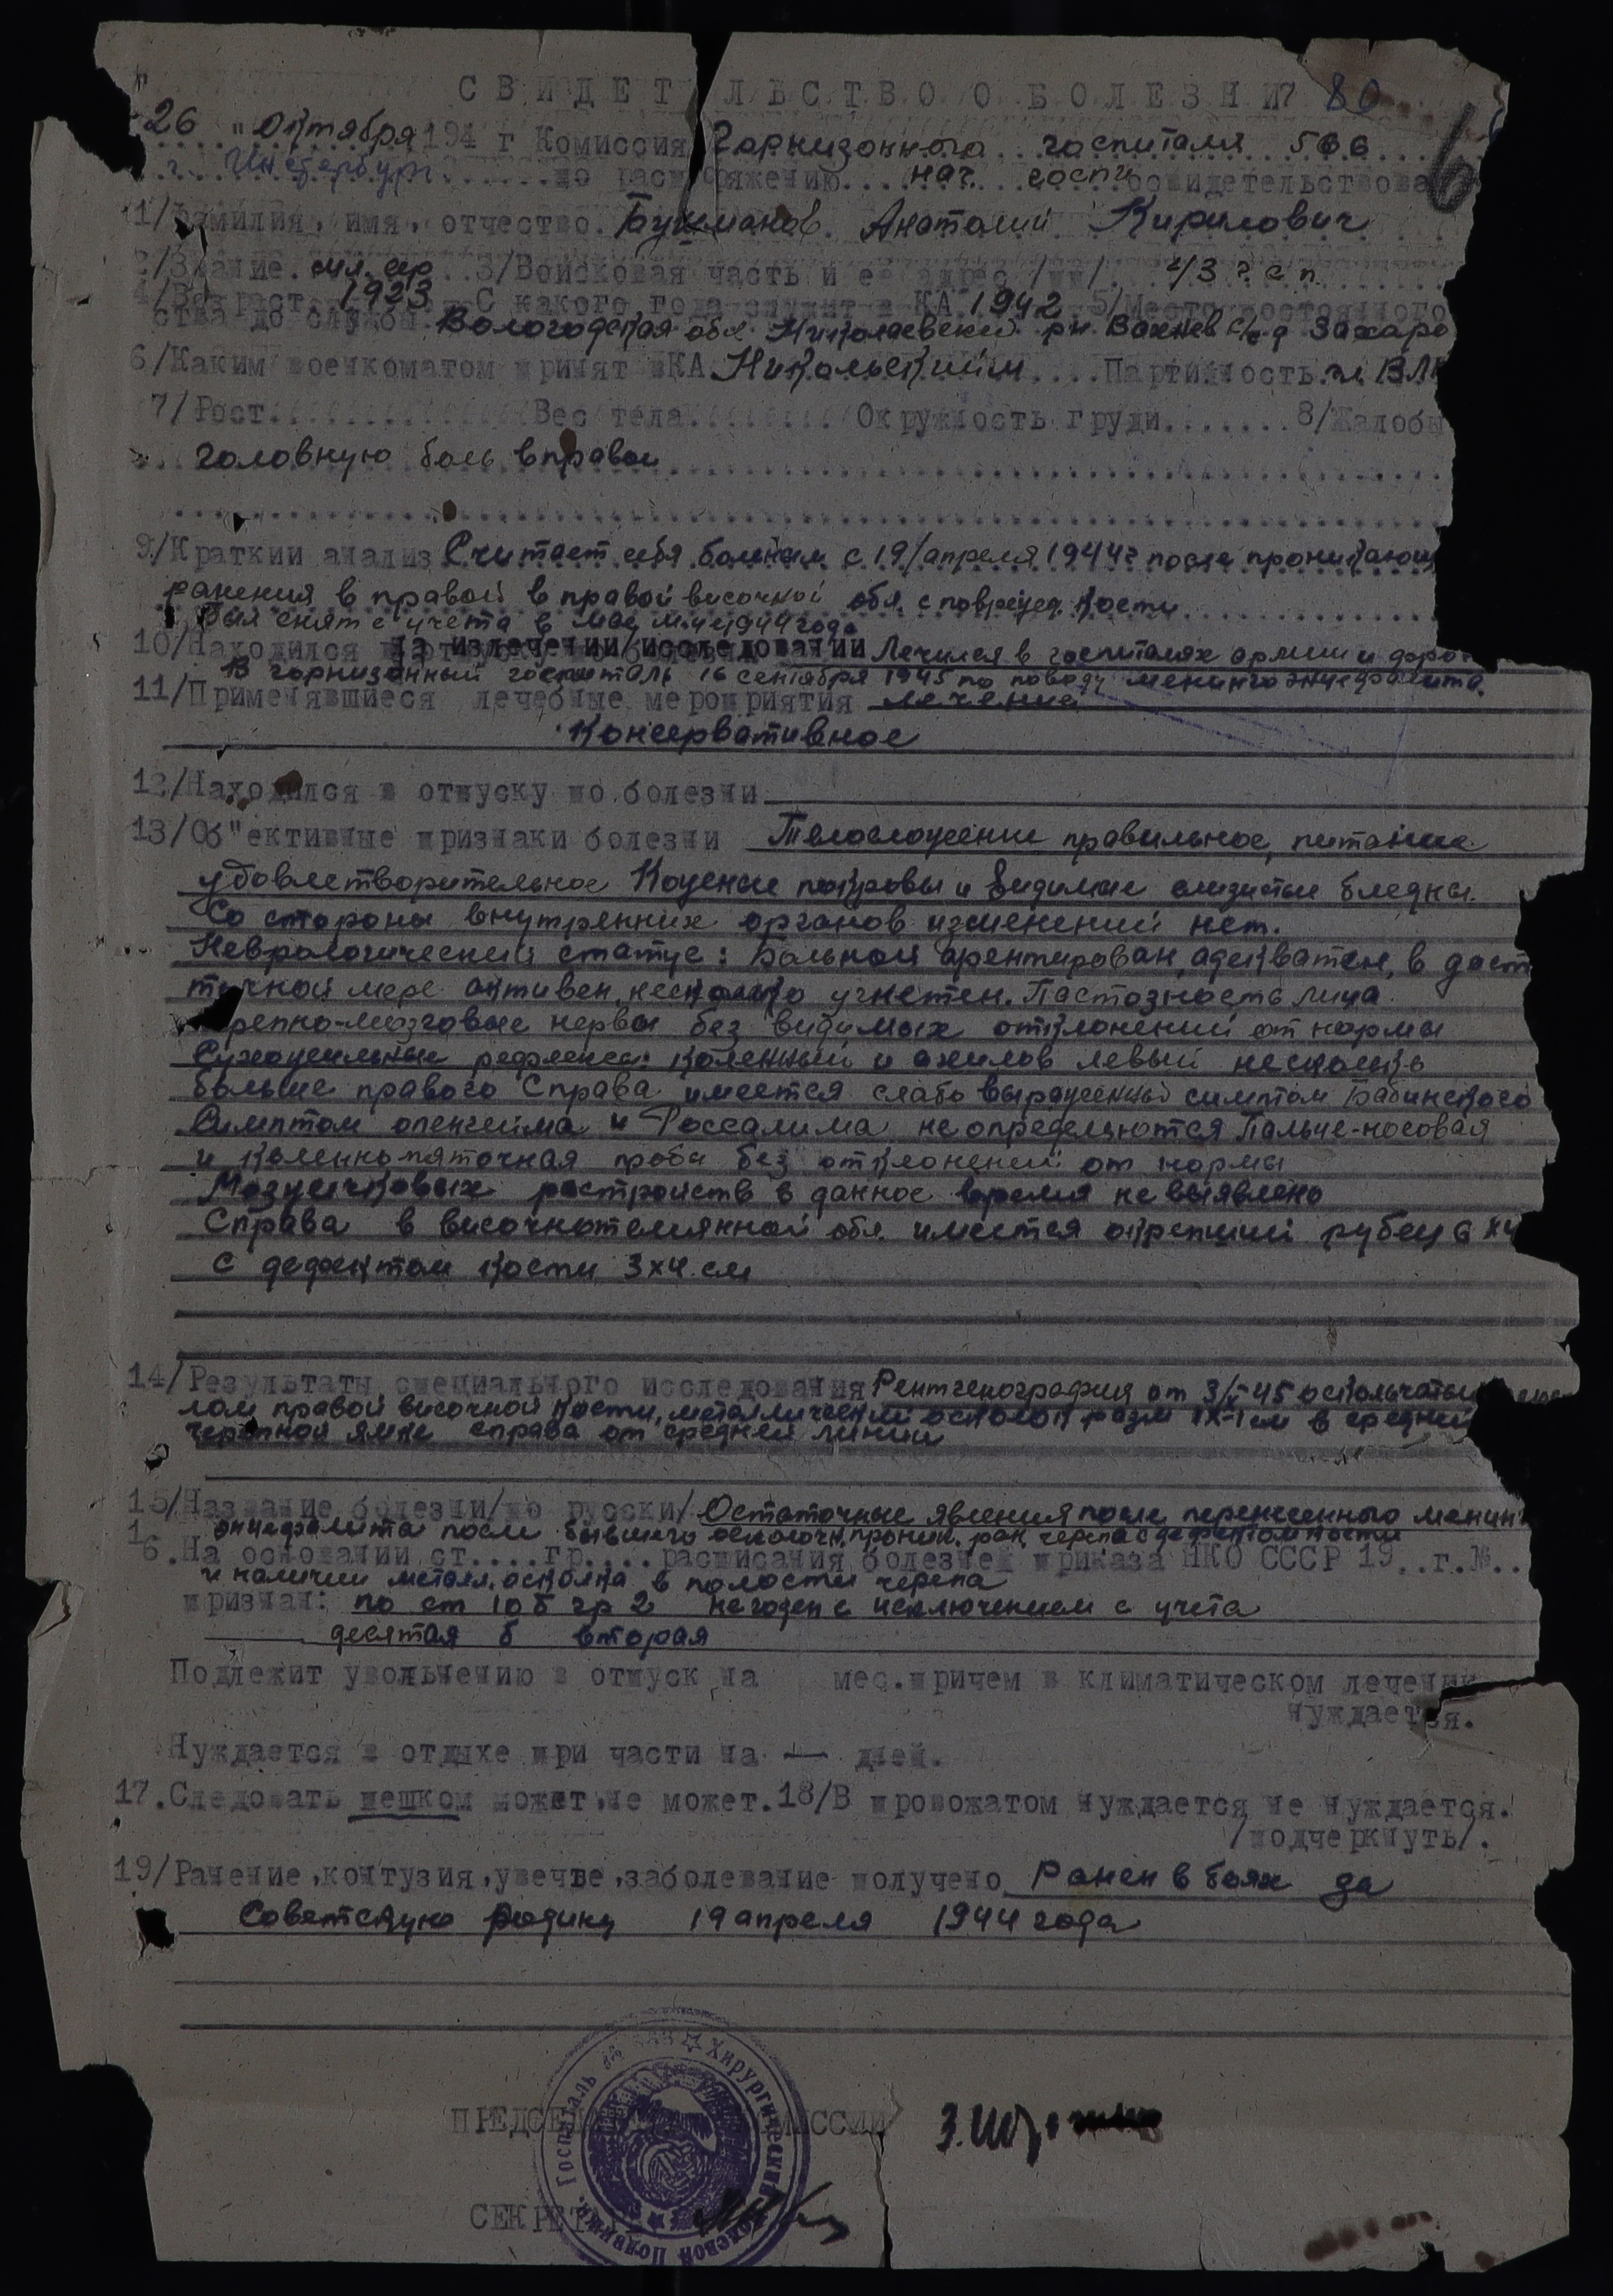 СВИДЕТЕЛЬСТВО О БОЛЕЗНИ 80
6
26 " октября 194 г Комиссия Гарнизонного госпиталя 566
г. Инстербург по распоряжению нач. госпи освидетельствова
1/Фамилия, имя, отчество Анатолий Кирилович
2/Звание мл. сер 3/Войсковая часть и ее адрес /пп/. 43 г.с.п.
4/Возраст 1923 С какого года служит в КА 1942 5/Место постоянного
ства до службы Вологодская обл. рн. с/с д Захаро
6/Каким военкоматом принят в КА Никольским Партийность чл. ВЛК
7/Рост Вес тела Окружность груди 8/Жалобы
головную боль вправой
9/Краткий анализ Считает себя больным с 19/апреля 1944г после проникающ
ранения в правой в правой височной обл. с поврежд. кости
Был снят с учета в мае м-це 1944 года
10/Находился на излечении/исследовании Лечился в госпиталях армии и
В гарнизонный госпиталь 16 сентября 1945 по поводу менингоэнцефалита.
11/Применявшиеся лечебные мероприятия лечение
Консервативное
12/Находился в отпуску по болезни
13/Об"ективные признаки болезни Телосложение правильное, питание
удовлетворительное Кожные покровы и видимые слизистые бледны.
Со стороны внутренних органов изменений нет.
Неврологический статус: Больной орентирован, адекватен, в дост
точной мере активен, несколько угнетен. Пастозность лица
черепно-мозговые нервы без видимых отклонений от нормы
Сухожильные рефлексы: коленный и ахилов левый несколько
больше правого Справа имеется слабо выраженный симптом Бабинского
Симптом опенгейма и Россалима не определяются Пальце-носовая
и коленнопяточная проба без отклонений от нормы
Мозжечковых растройств в данное время не выявлено
Справа в височнотемянной обл. имеется окрепший рубец 6 х4
с дефектом кости 3х4 см
14/Результаты специального исследования Рентгенография от 45 оскольчатый
лом правой височной кости, металлический осколок разм 1х1 см в средней
черепной ямке справа от средней линии
15/Название болезни/по русски/ Остаточные явления после перенесенного менинг
энцефалита после бывшего осколочн. проник. ран. черепа с дефектом кости
16. На основании ст....гр.... расписания болезней приказа НКО СССР 19..г.№..
и наличии металл. осколка в полости черепа
признан: по ст 10 б гр 2 не годен с исключением с учета
десятая б вторая
Подлежит увольнению в отпуск на мес. причем в климатическом лечении
нуждается.
Нуждается в отдыхе при части на — дней.
17. Следовать пешком может, не может. 18/В провожатом нуждается не нуждается.
/подчеркнуть/.
19/Ранение, контузия, увечье, заболевание получено Ранен в боях за
Советскую родину 19 апреля 1944 года
ПРЕДСЕД МИССИИ
СЕКРЕТ
Хирургический Полевой Подвижн. Госпиталь №